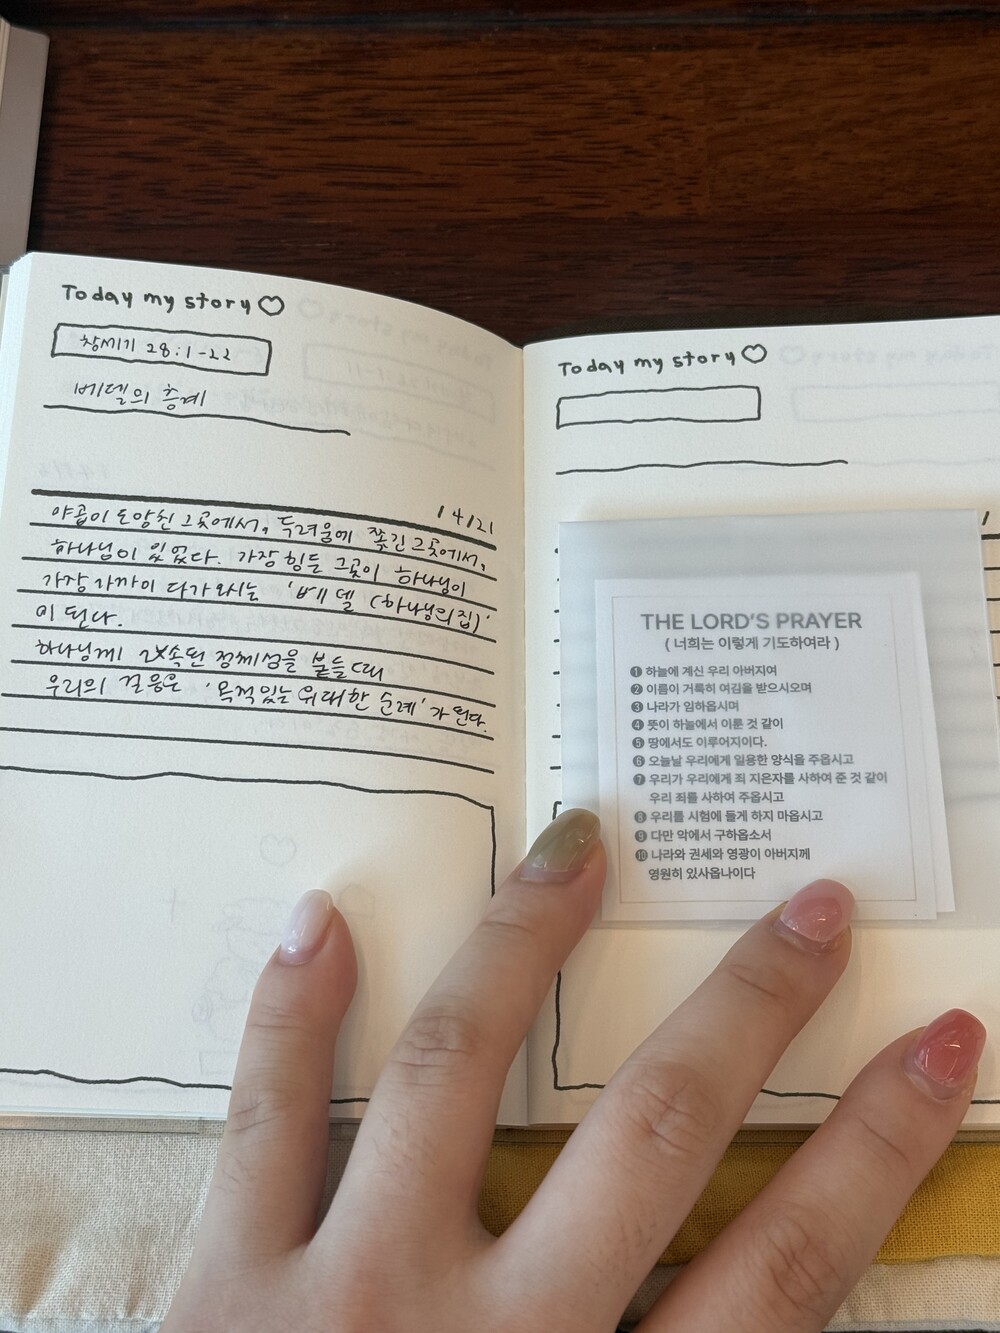 Today my story♡
창세기 28:1-22
베델의 층계
1/4/21
야곱이 도망친 그곳에서, 두려움에 쫓긴 그곳에서,
하나님이 있었다. 가장 힘든 그곳이 하나님이
가장 가까이 다가오시는 '베델 (하나님의집)'
이 된다.
하나님께 속된 정체성을 붙들때
우리의 걸음은 '목적있는 위대한 순례'가 된다.
Today my story♡
THE LORD'S PRAYER
( 너희는 이렇게 기도하여라 )
❶ 하늘에 계신 우리 아버지여
❷ 이름이 거룩히 여김을 받으시오며
❸ 나라가 임하옵시며
❹ 뜻이 하늘에서 이룬 것 같이
❺ 땅에서도 이루어지이다.
❻ 오늘날 우리에게 일용한 양식을 주옵시고
❼ 우리가 우리에게 죄 지은자를 사하여 준 것 같이
우리 죄를 사하여 주옵시고
❽ 우리를 시험에 들게 하지 마옵시고
❾ 다만 악에서 구하옵소서
❿ 나라와 권세와 영광이 아버지께
영원히 있사옵나이다